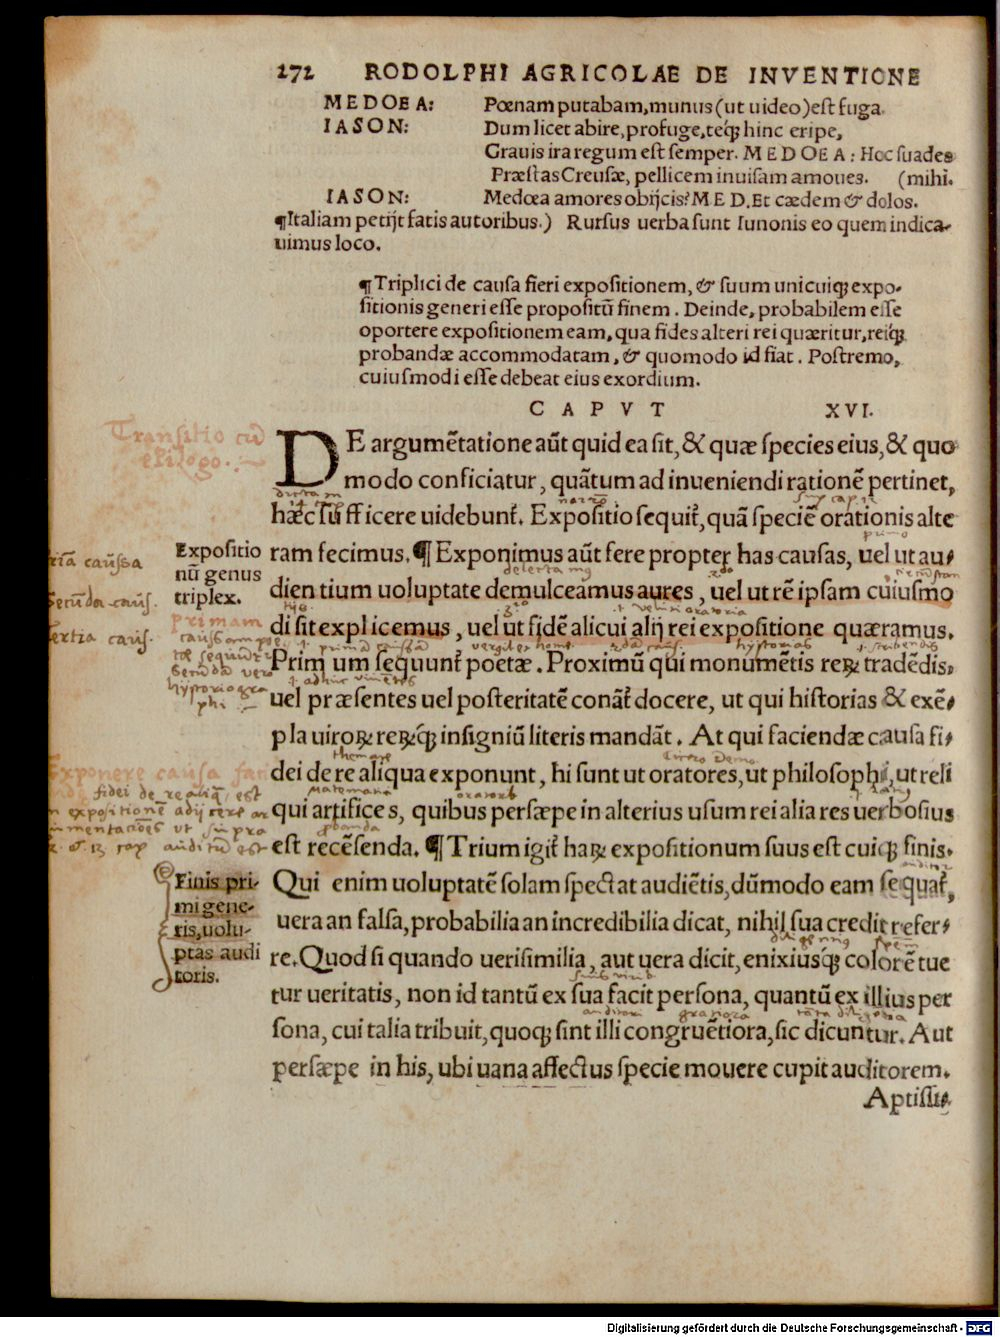 272 RODOLPHI AGRICOLAE DE INVENTIONE
MEDOEA: Pœnam putabam, munus (ut uideo) est fuga.
IASON: Dum licet abire, profuge, teq́; hinc eripe,
Grauis ira regum est semper. MEDOEA: Hoc suades
Præstas Creusæ, pellicem inuisam amoues. (mihi.
IASON: Medœa amores obijcis? MED. Et cædem & dolos.
¶Italiam petijt fatis autoribus.) Rursus uerba sunt Iunonis eo quem indica-
uimus loco.
¶Triplici de causa fieri expositionem, & suum unicuiq; expo-
sitionis generi esse propositū finem. Deinde, probabilem esse
oportere expositionem eam, qua fides alteri rei quæritur, reiq́;
probandæ accommodatam, & quomodo id fiat. Postremo,
cuiusmodi esse debeat eius exordium.
CAPVT XVI.
Transitio cū
epilogo.
DE argumētatione aūt quid ea sit, & quæ species eius, & quo
modo conficiatur, quātum ad inueniendi rationē pertinet,
hæc sufficere uidebunt̃. Expositio sequit̃, quā speciē orationis alte
ram fecimus. ¶ Exponimus aūt fere propter has causas, uel ut au-
dientium uoluptate demulceamus aures, uel ut rē ipsam cuiusmo
di sit explicemus, uel ut fidē alicui alij rei expositione quæramus.
Primum sequunt̃ poetæ. Proximū qui monumētis reꝝ tradēdis,
uel præsentes uel posteritatē conāt̃ docere, ut qui historias & exē-
pla uiroꝝ reꝝq́; insigniū literis mandāt. At qui faciendæ causa fi-
dei de re aliqua exponunt, hi sunt ut oratores, ut philosophi, ut reli
qui artifices, quibus persæpe in alterius usum rei alia res uerbosius
est recēsenda. ¶ Trium igit̃ haꝝ expositionum suus est cuiq; finis.
Qui enim uoluptatē solam spectat audiētis, dūmodo eam sequat̃,
uera an falsa, probabilia an incredibilia dicat, nihil sua credit refer-
re. Quod si quando uerisimilia, aut uera dicit, enixiusq́; colorē tue
tur ueritatis, non id tantū ex sua facit persona, quantū ex illius per
sona, cui talia tribuit, quoq; sint illi congruētiora, sic dicuntur. Aut
persæpe in his, ubi uana affectus specie mouere cupit auditorem.
Aptissi-
Expositio
nū genus
triplex.
Finis pri-
mi gene-
ris, uolu-
ptas audi
toris.
Digitalisierung gefördert durch die Deutsche Forschungsgemeinschaft - DFG